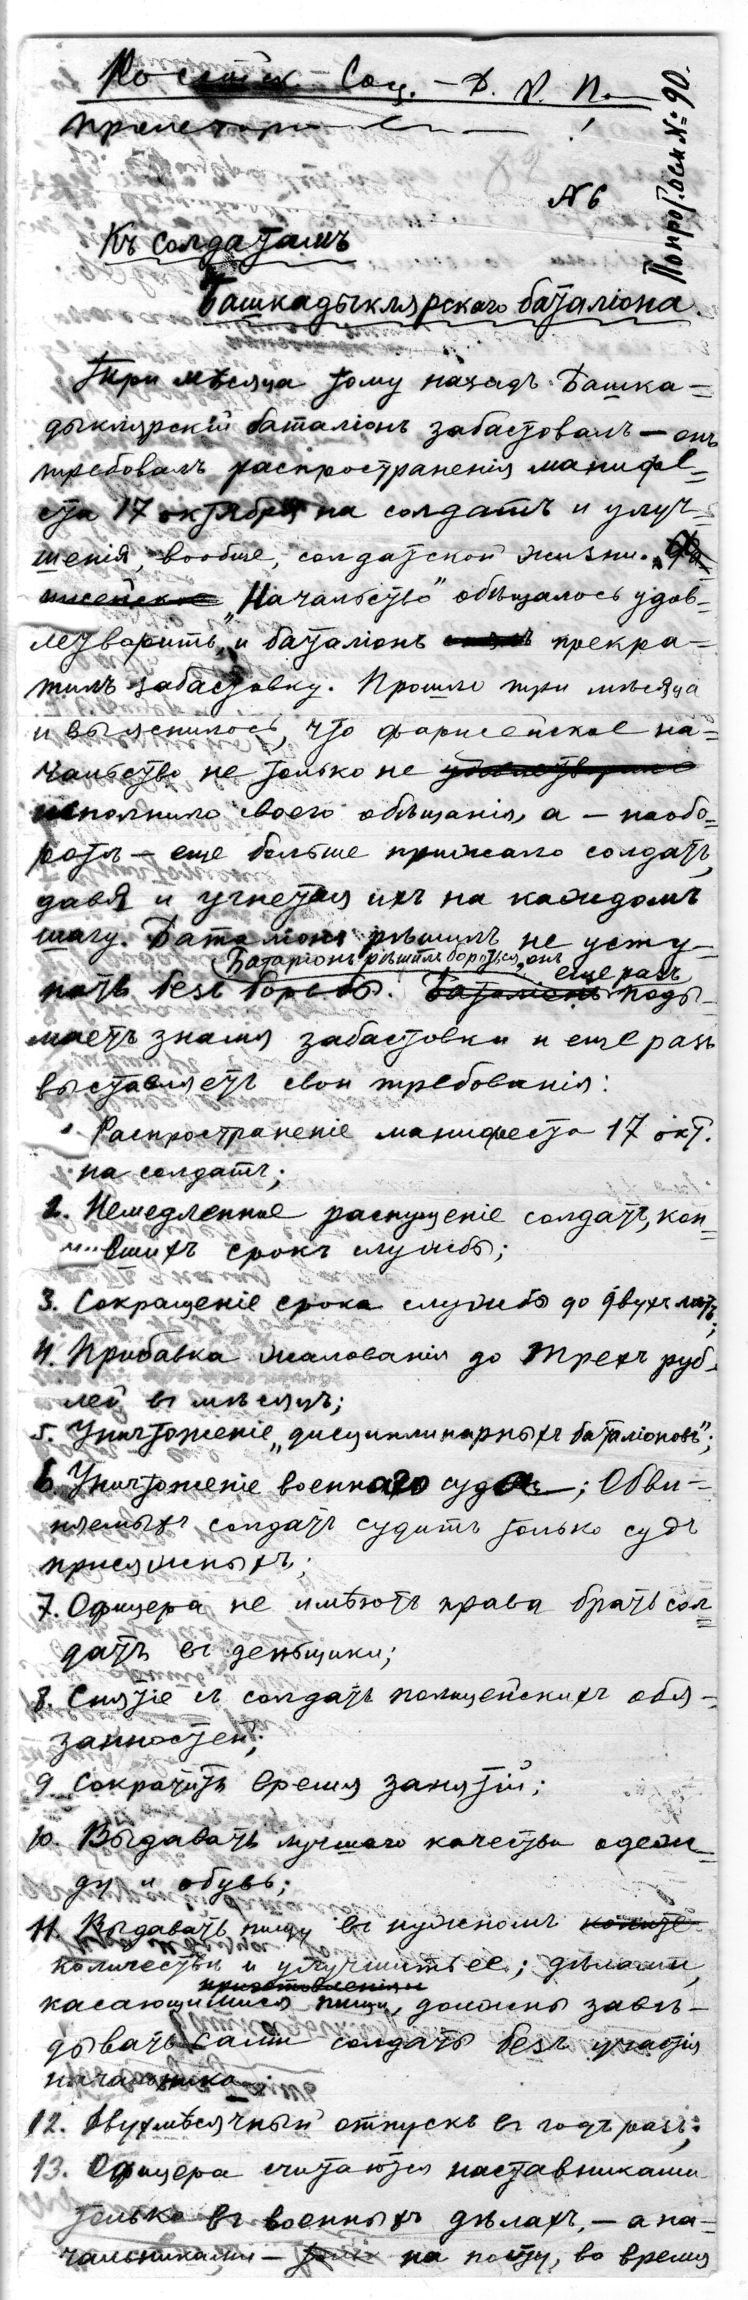 Россійск. Соц. – Д. Р. П.
Пролетаріи – – !
По прот. осм № 90.
№ 6
Къ солдатамъ
Башкадыклярскаго баталіона.
Три мѣсяца тому назадъ Башка=
дыклярскій баталіонъ забастовалъ – онъ
требовалъ распространенія манифе=
ста 17 октября на солдатъ и улуч=
шенія, вообще, солдатской жизни. Фа
рисейское „Начальство" обѣщалось удов=
летворить, и баталіонъ прекра=
тилъ забастовку. Прошло три мѣсяца
и выяснилось, что фарисейское на=
чальство не только не удовлетворило
исполнило своего обѣщанія, а – наобо=
ротъ – еще больше прижало солдатъ,
давя и угнетая ихъ на каждомъ
шагу. Баталіонъ рѣшилъ не усту=
Баталіонъ рѣшилъ бороться, онъ еще разъ
пать безъ борьбы. Баталіонъ поды=
маетъ знамя забастовки и еще разъ
выставляетъ свои требованія:
Распространеніе манифеста 17 окт.
на солдатъ;
2. Немедленное распущеніе солдатъ, кон=
чившихъ срокъ службы;
3. Сокращеніе срока службы до двухъ лѣтъ;
4. Прибавка жалованія до трехъ руб=
лей въ мѣсяцъ;
5. Уничтоженіе „дисциплинарныхъ баталіоновъ";
6. Уничтоженіе военнаго суда; Обви=
няемыхъ солдатъ судитъ только судъ
присяжныхъ;
7. Офицера не имѣютъ права брать сол=
датъ въ деньщики;
8. Снятіе съ солдатъ полицейскихъ обя=
занностей;
9. Сократить время занятій;
10. Выдавать лучшаго качества одеж=
ду и обувь;
11. Выдавать пищу въ нужномъ количе
количествѣ и улучшить ее; дѣлами,
приготовленія
касающимися пищи, должны завѣ=
дывать сами солдаты безъ участія
начальника.
12. Двухмѣсячный отпускъ въ годъ разъ;
13. Офицера считаются наставниками
только въ военныхъ дѣлахъ, – а на=
чальниками – на посту, во время